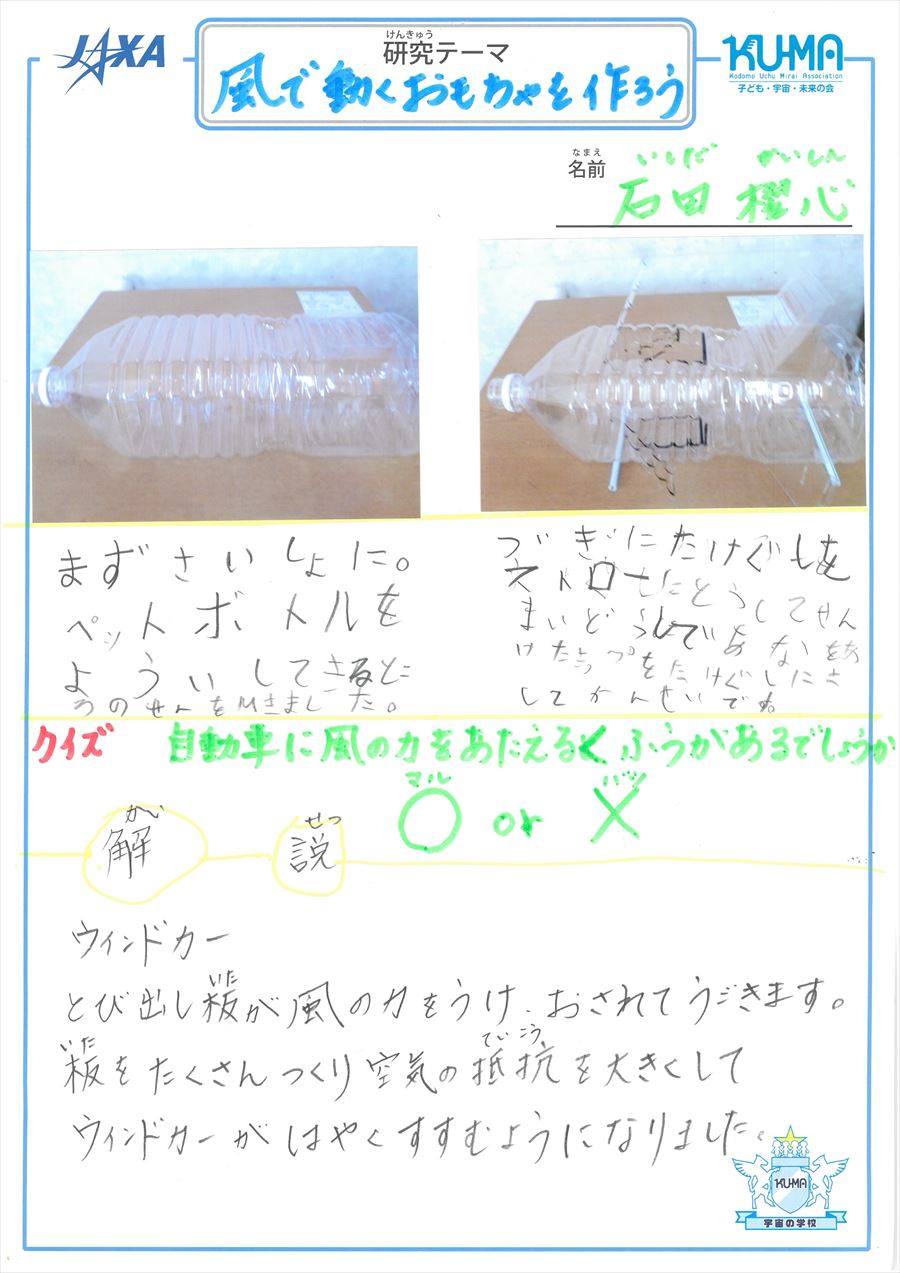 JAXA
けんきゅう
研究テーマ
風で動くおもちゃを作ろう
KU-MA
Kodomo Uchu Mirai Association
子ども・宇宙・未来の会
なまえ
名前
いしだ かいしん
石田 櫂心
まずさいしょに。
ペットボトルを
よういしてきると
ころのせんをひきました。
つぎにたけぐしを
ストロー
してかんせいです。
クイズ 自動車に風の力をあたえるくふうがあるでしょうか
マル バツ
○ or ×
かい せつ
解 説
ウィンドカー
いた
とび出し板が風の力をうけ、おされてうごきます。
いた ていこう
板をたくさんつくり空気の抵抗を大きくして
ウィンドカーがはやくすすむようになりました。
KU-MA
宇宙の学校